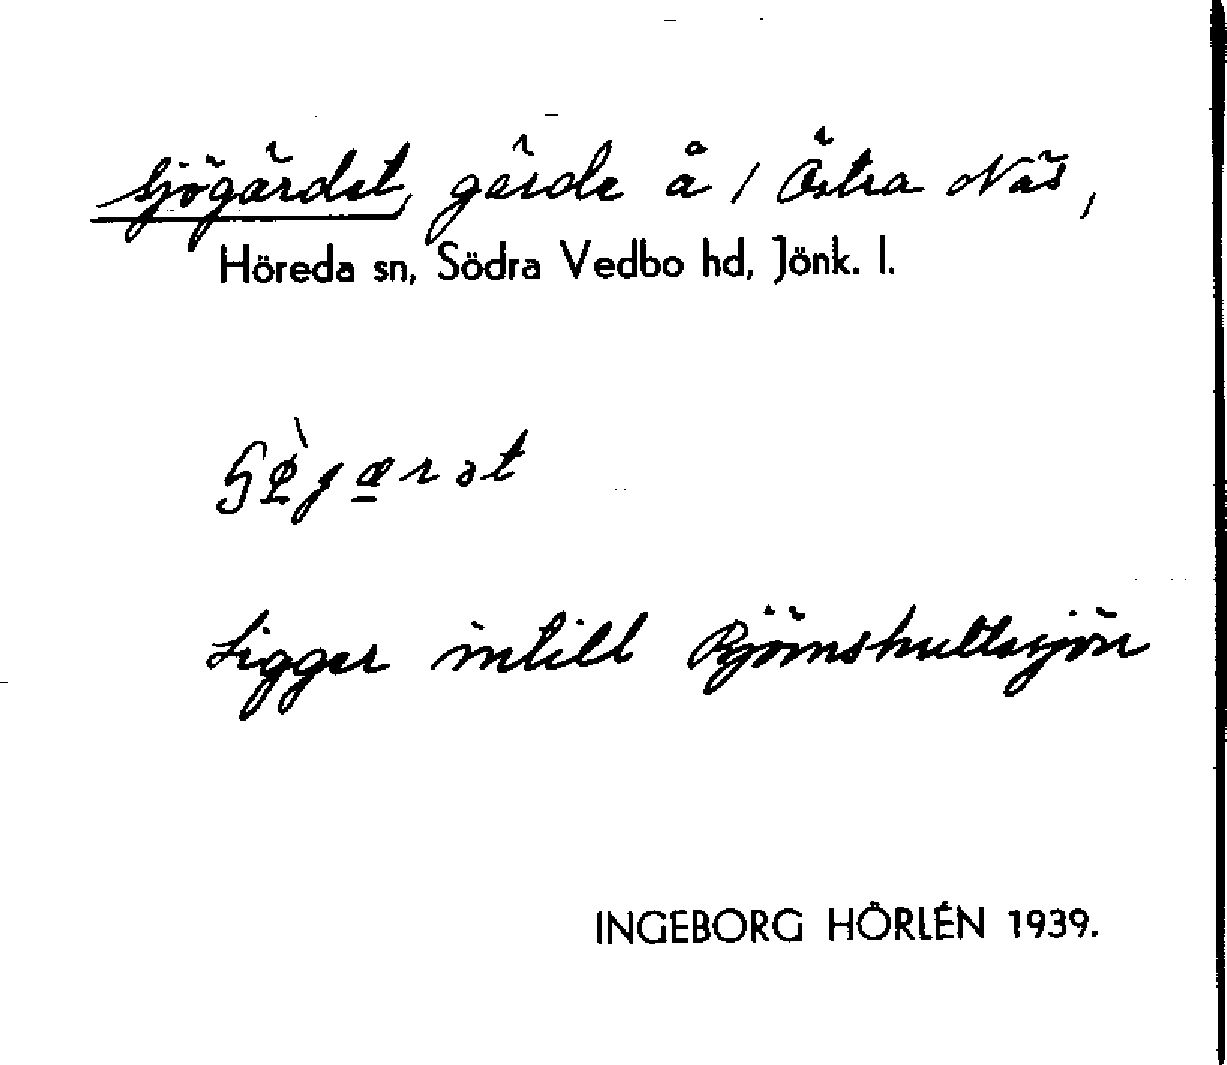 Sjögärdet, gärde å 1 Östra Näs,
Höreda sn, Södra Vedbo hd, Jönk. l.
Ligger intill Björnshultasjön
INGEBORG HÖRLÉN 1939.